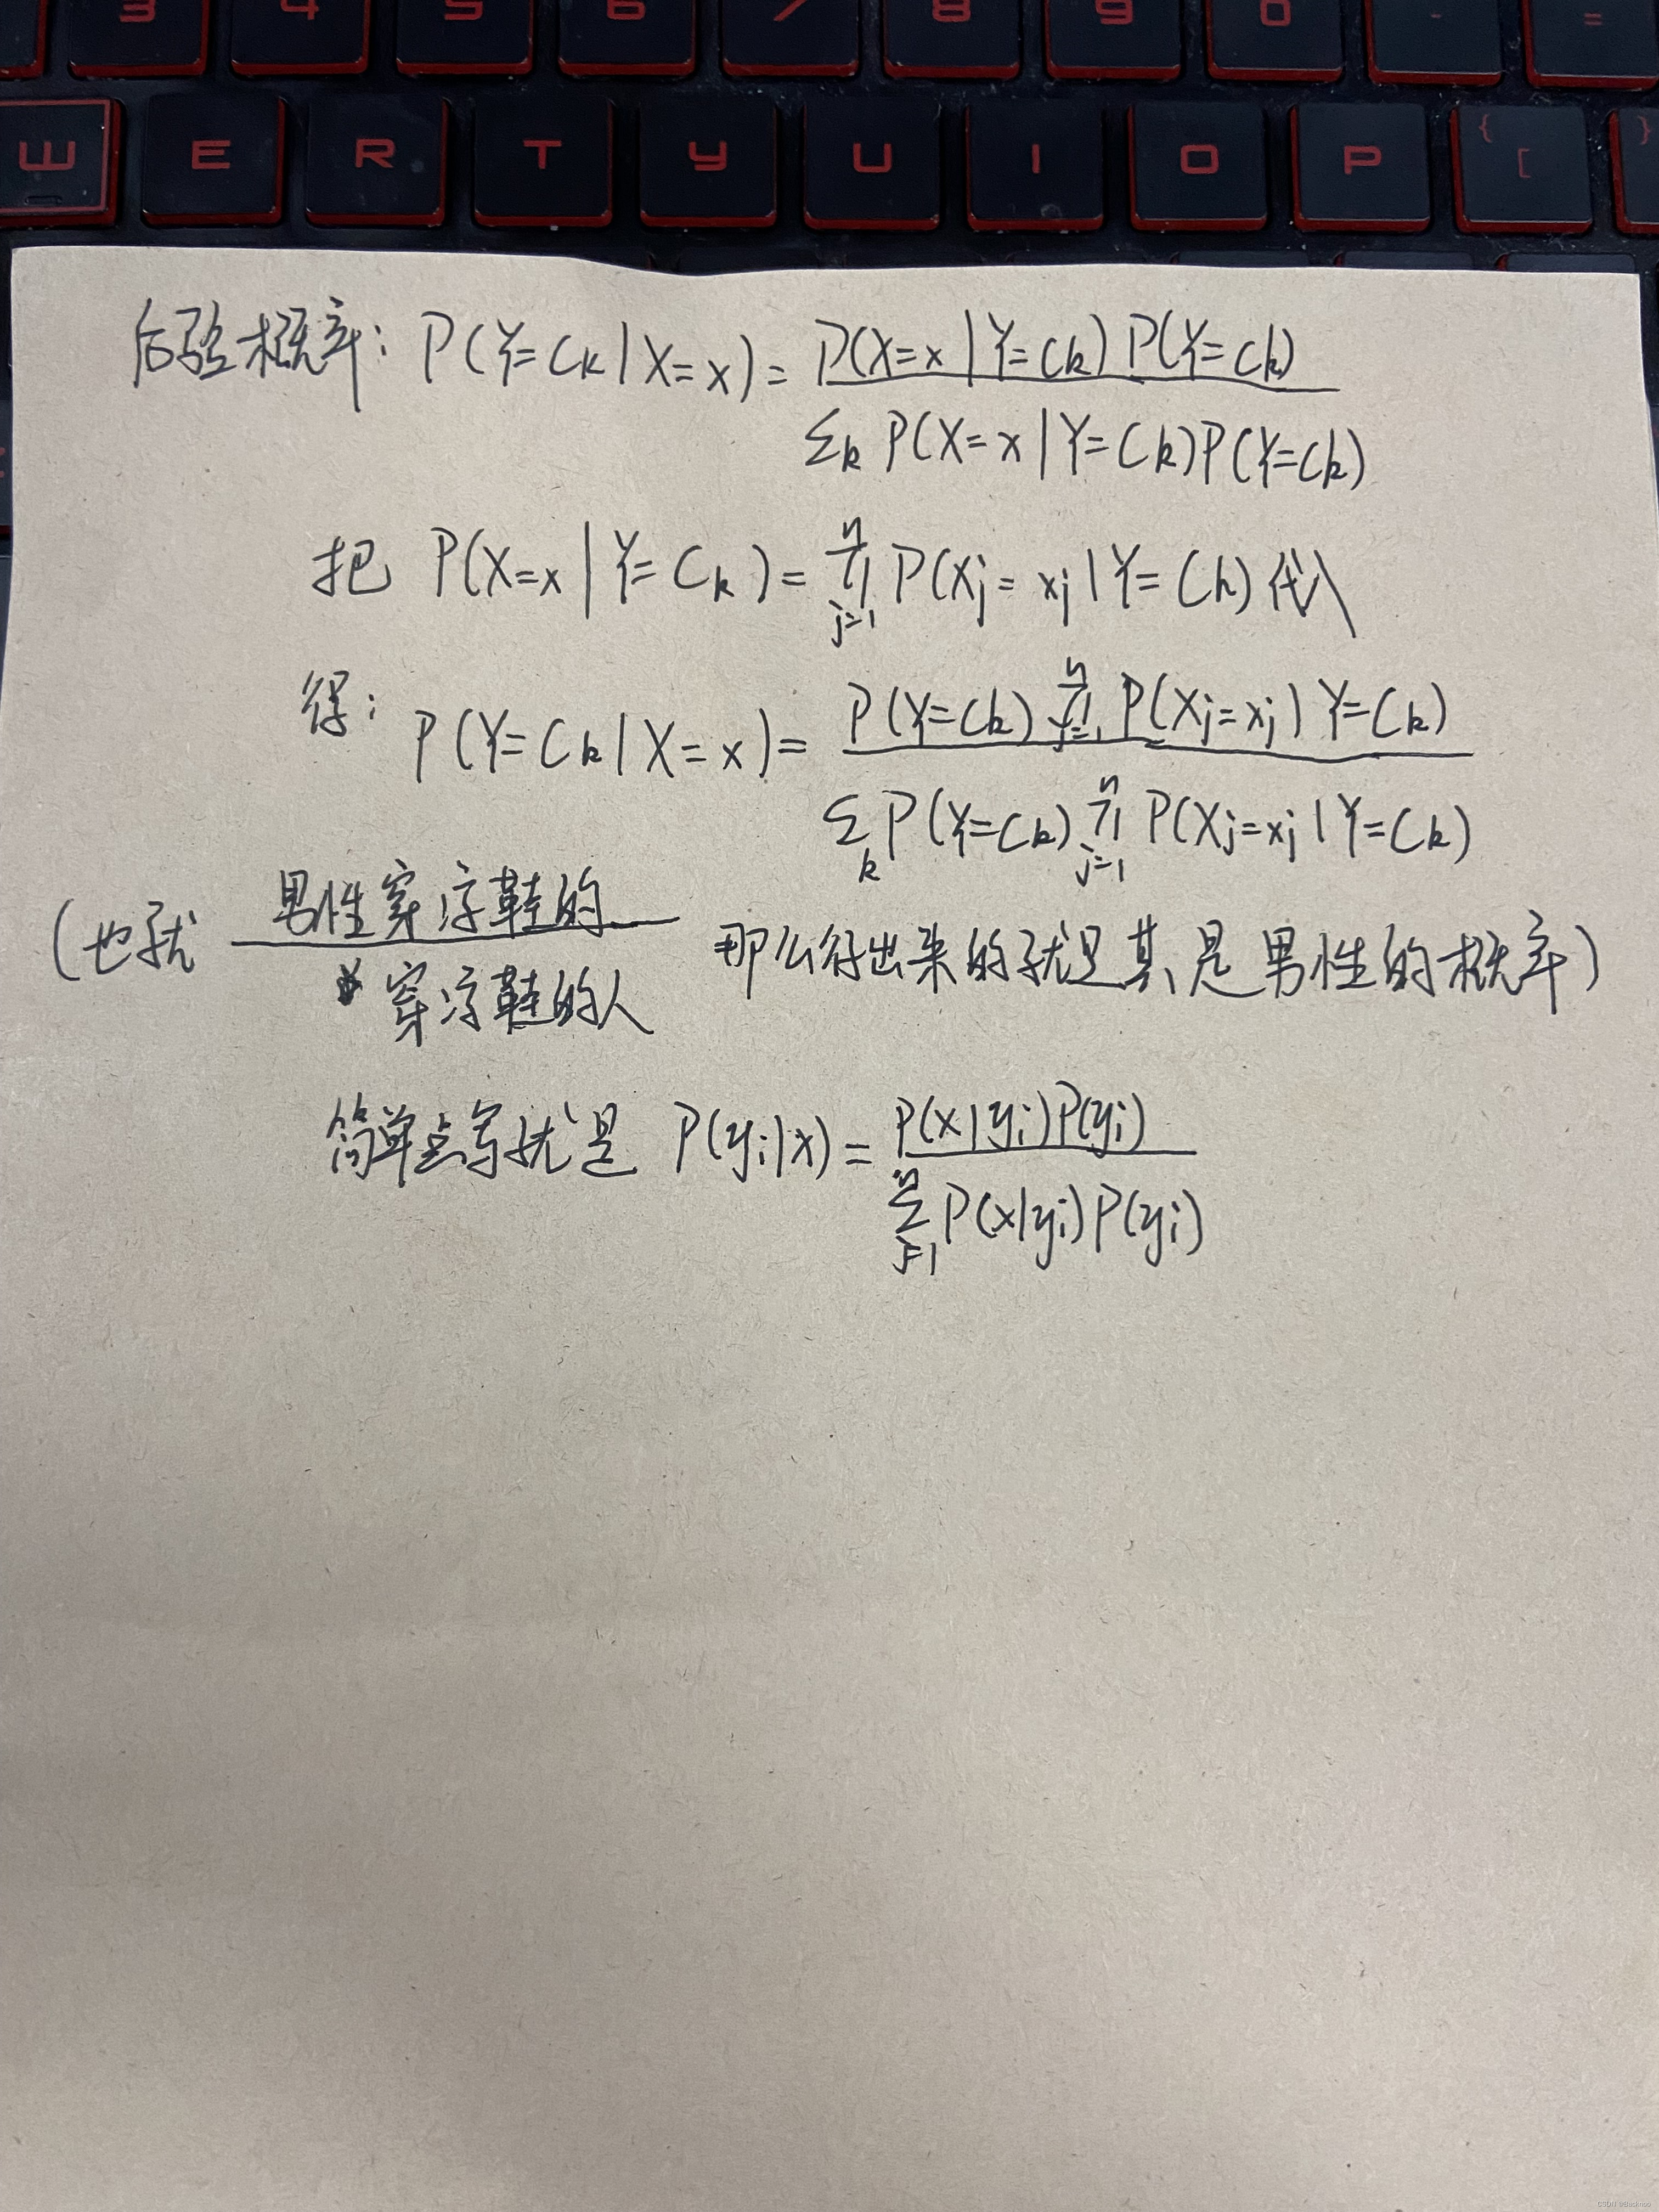 3 4 5 6 7 8 9 0 - =
W E R T Y U I O P { [ }
后验概率: P(Y=Ck|X=x)= P(X=x|Y=Ck)P(Y=Ck)
Σk P(X=x|Y=Ck)P(Y=Ck)
把 P(X=x|Y=Ck)= n∏j=1 P(Xj=xj|Y=Ck)代入
得: P(Y=Ck|X=x)= P(Y=Ck) n∏j=1 P(Xj=xj|Y=Ck)
Σk P(Y=Ck) n∏j=1 P(Xj=xj|Y=Ck)
(也就 男性穿凉鞋的 那么得出来的就是其是男性的概率)
穿凉鞋的人
简单点写就是 P(yi|x)= P(x|yi)P(yi)
nΣj=1 P(x|yi)P(yi)